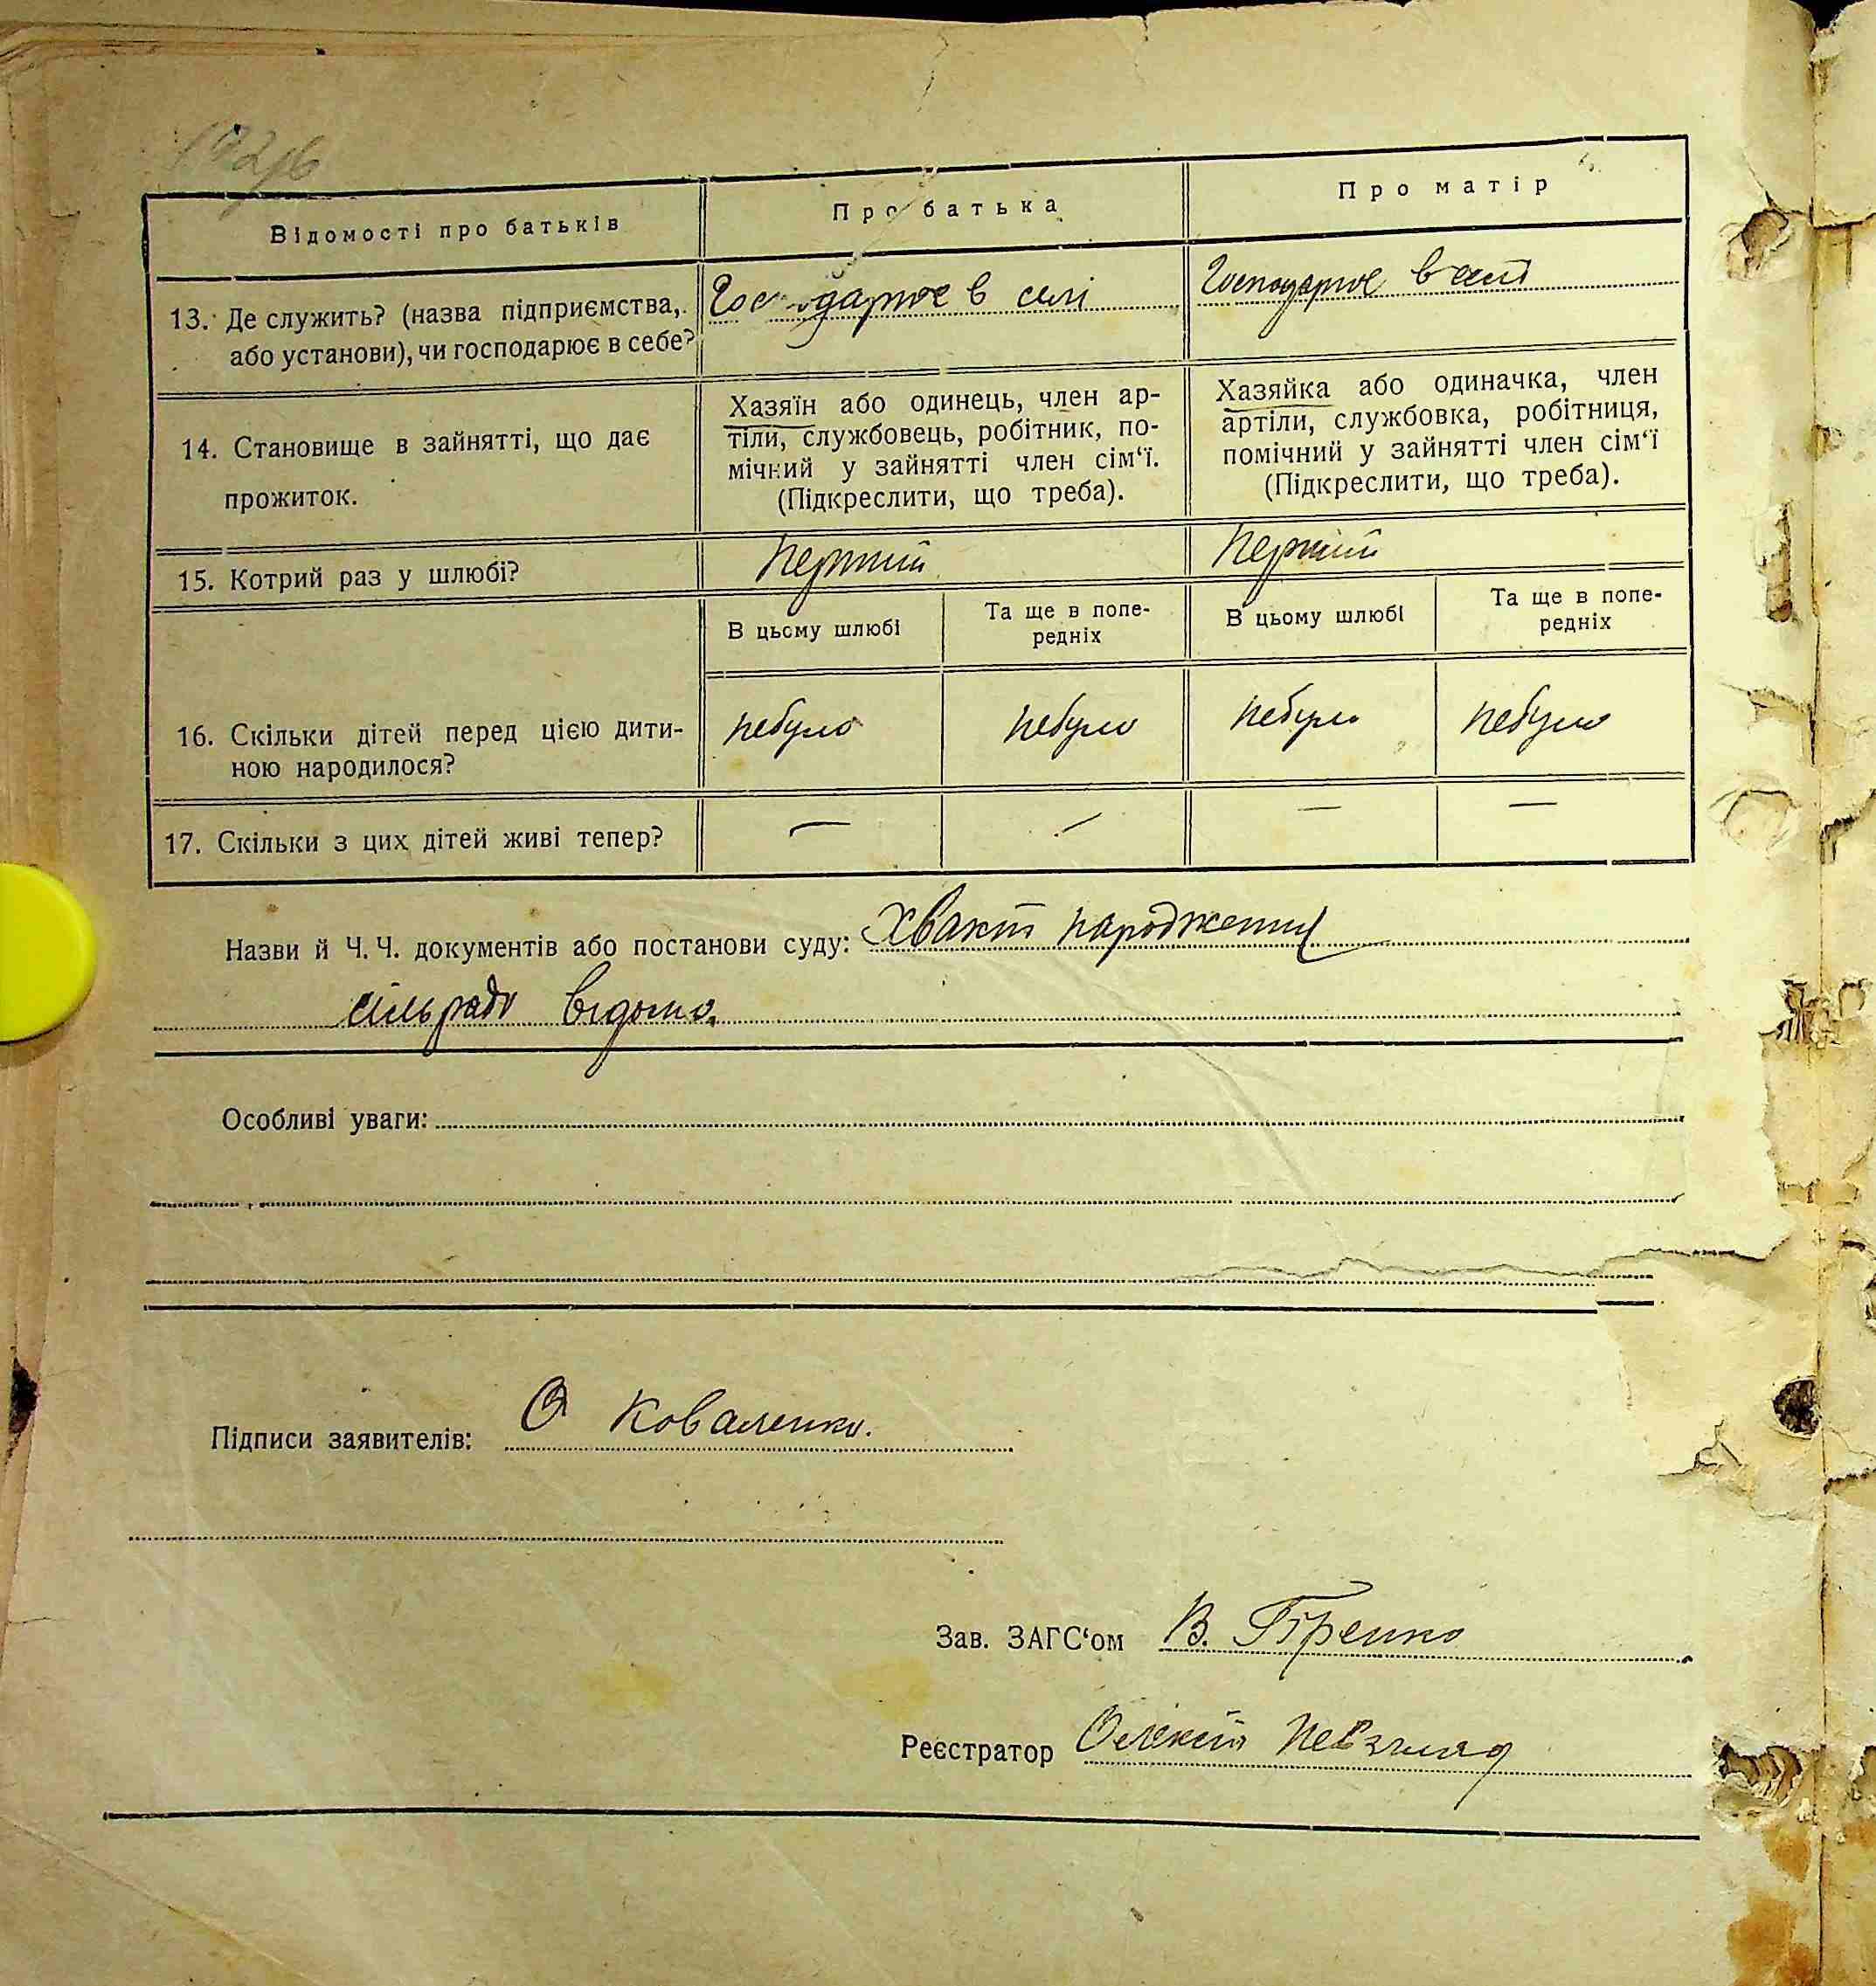 Відомості про батьків
Про батька
Про матір
13. Де служить? (назва підприємства,
або установи), чи господарює в себе?
Господарює в селі
Господарює в селі
14. Становище в зайнятті, що дає
прожиток.
Хазяїн або одинець, член ар-
тіли, службовець, робітник, по-
мічний у зайнятті член сім‘ї.
(Підкреслити, що треба).
Хазяйка або одиначка, член
артіли, службовка, робітниця,
помічний у зайнятті член сім‘ї
(Підкреслити, що треба).
15. Котрий раз у шлюбі?
Перший
Перший
В цьому шлюбі
Та ще в попе-
редніх
В цьому шлюбі
Та ще в попе-
редніх
16. Скільки дітей перед цією дити-
ною народилося?
небуло
небуло
небуло
небуло
17. Скільки з цих дітей живі тепер?
— — — —
Назви й Ч. Ч. документів або постанови суду: Хвакт народження
сільраді відомо.
Особливі уваги:
Підписи заявителів: О Коваленко.
Зав. ЗАГС‘ом В.
Реєстратор Олексій Невзгляд